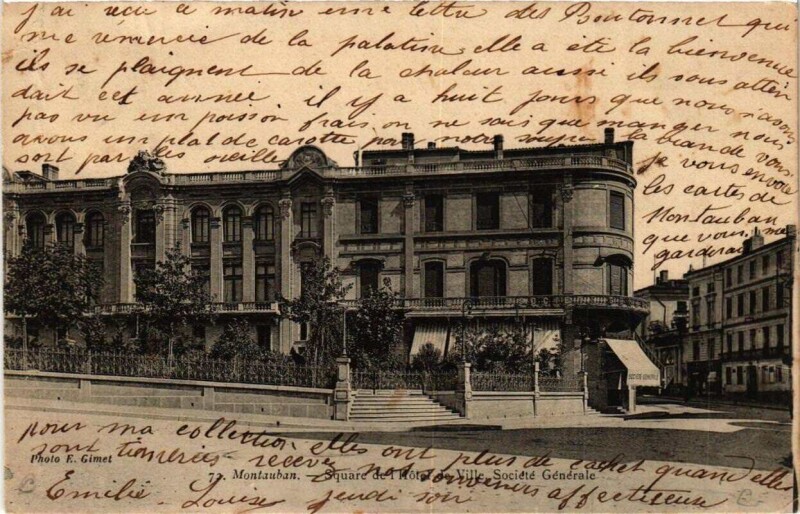 j'ai reçu ce matin une lettre des Boutonnet qui
me remercie de la palatine elle a été la bienvenue
ils se plaignent de la chaleur aussi ils vous atten
dait cet année il y a huit jours que nous n'avons
pas vu un poisson frais on ne sais que manger nous
avons un plat de carotte pour notre souper la viande vous
sort par les oreilles je vous envoie
les cartes de
Montauban
que vous me
garderai
pour ma collection elles ont plus de cachet quand elles
sont timbrées recevez nos souvenirs affectueuse
Photo E. Gimet
72. Montauban. — Square de l'Hôtel de Ville, Société Générale
Emilie Louise jeudi soir